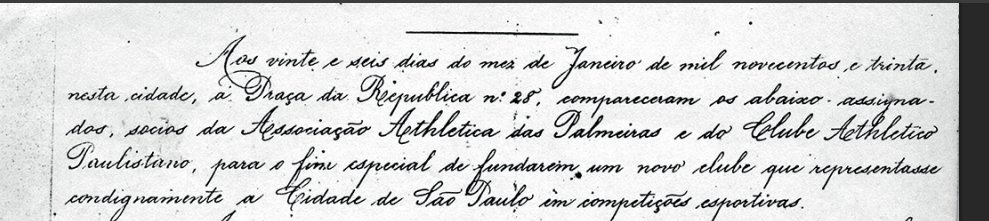 Aos vinte e seis dias do mez de Janeiro de mil novecentos e trinta,
nesta cidade, á Praça da Republica n.º 28, compareceram os abaixo-assigna-
dos, socios da Associação Athletica das Palmeiras e do Clube Athletico
Paulistano, para o fim especial de fundarem um novo clube que representasse
condignamente a Cidade de São Paulo em competições esportivas.